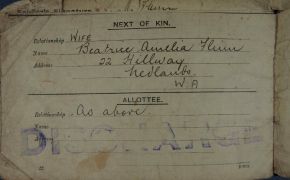 NEXT OF KIN.
Relationship WIFE
Name Beatrice Amelia Flinn
Address 22 Hillway
Nedlands.
W.A
ALLOTTEE.
Relationship As above.
Name
Address
DISCHARGE